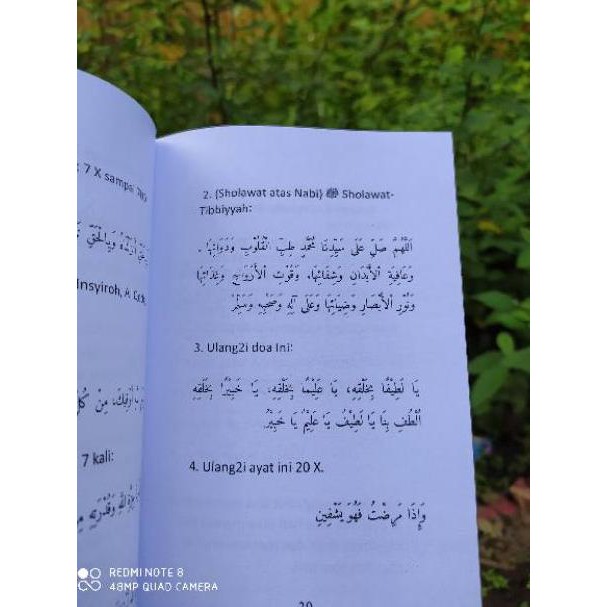 : 7 X sampai
Insyiroh, A
7 kali:
2. (Sholawat atas Nabi) ﷺ Sholawat-
Tibbiyyah:
اَللّٰهُمَّ صَلِّ عَلَى سَيِّدِنَا مُحَمَّدٍ طِبِّ الْقُلُوْبِ وَدَوَائِهَا.
وَعَافِيَةِ الْأَبْدَانِ وَشِفَائِهَا. وَقُوْتِ الْأَرْوَاحِ وَغِذَائِهَا
وَنُوْرِ الْأَبْصَارِ وَضِيَائِهَا وَعَلَى آلِهِ وَصَحْبِهِ وَسَلِّمْ
3. Ulang2i doa Ini:
يَا لَطِيْفًا بِخَلْقِهِ، يَا عَلِيْمًا بِخَلْقِهِ، يَا خَبِيْرًا بِخَلْقِهِ
اُلْطُفْ بِنَا يَا لَطِيْفُ يَا عَلِيْمُ يَا خَبِيْرُ
4. Ulang2i ayat ini 20 X.
وَإِذَا مَرِضْتُ فَهُوَ يَشْفِيْنِ
20
REDMI NOTE 8
48MP QUAD CAMERA